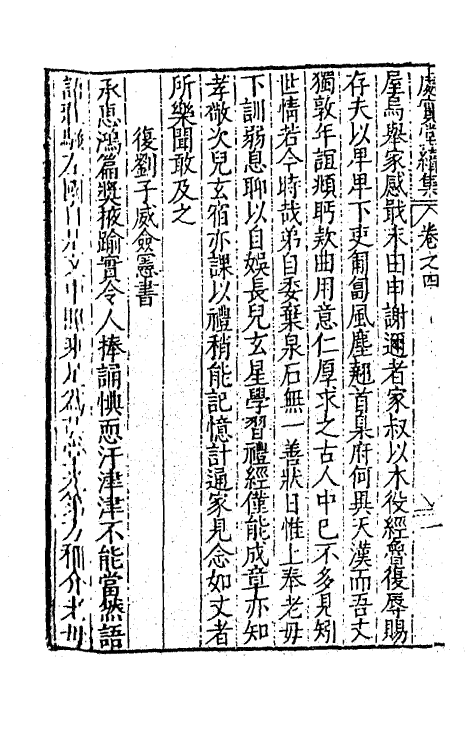 處實堂續集 卷之四
屋烏舉家感戢未由申謝邇者家叔以木役經會復辱賜
存夫以卑卑下吏匍匐風塵翹首臬府何異天漢而吾丈
獨敦年誼頻眄款曲用意仁厚求之古人中已不多見矧
世情若今時哉弟自委棄泉石無一善狀日惟上奉老母
下訓弱息聊以自娛長兒玄星學習禮經僅能成章亦知
孝敬次兒玄宿亦課以禮稍能記憶計通家見念如丈者
所樂聞敢及之
復劉子威僉憲書
承惠鴻篇獎掖踰實令人捧誦愧恧汗津津不能當然語